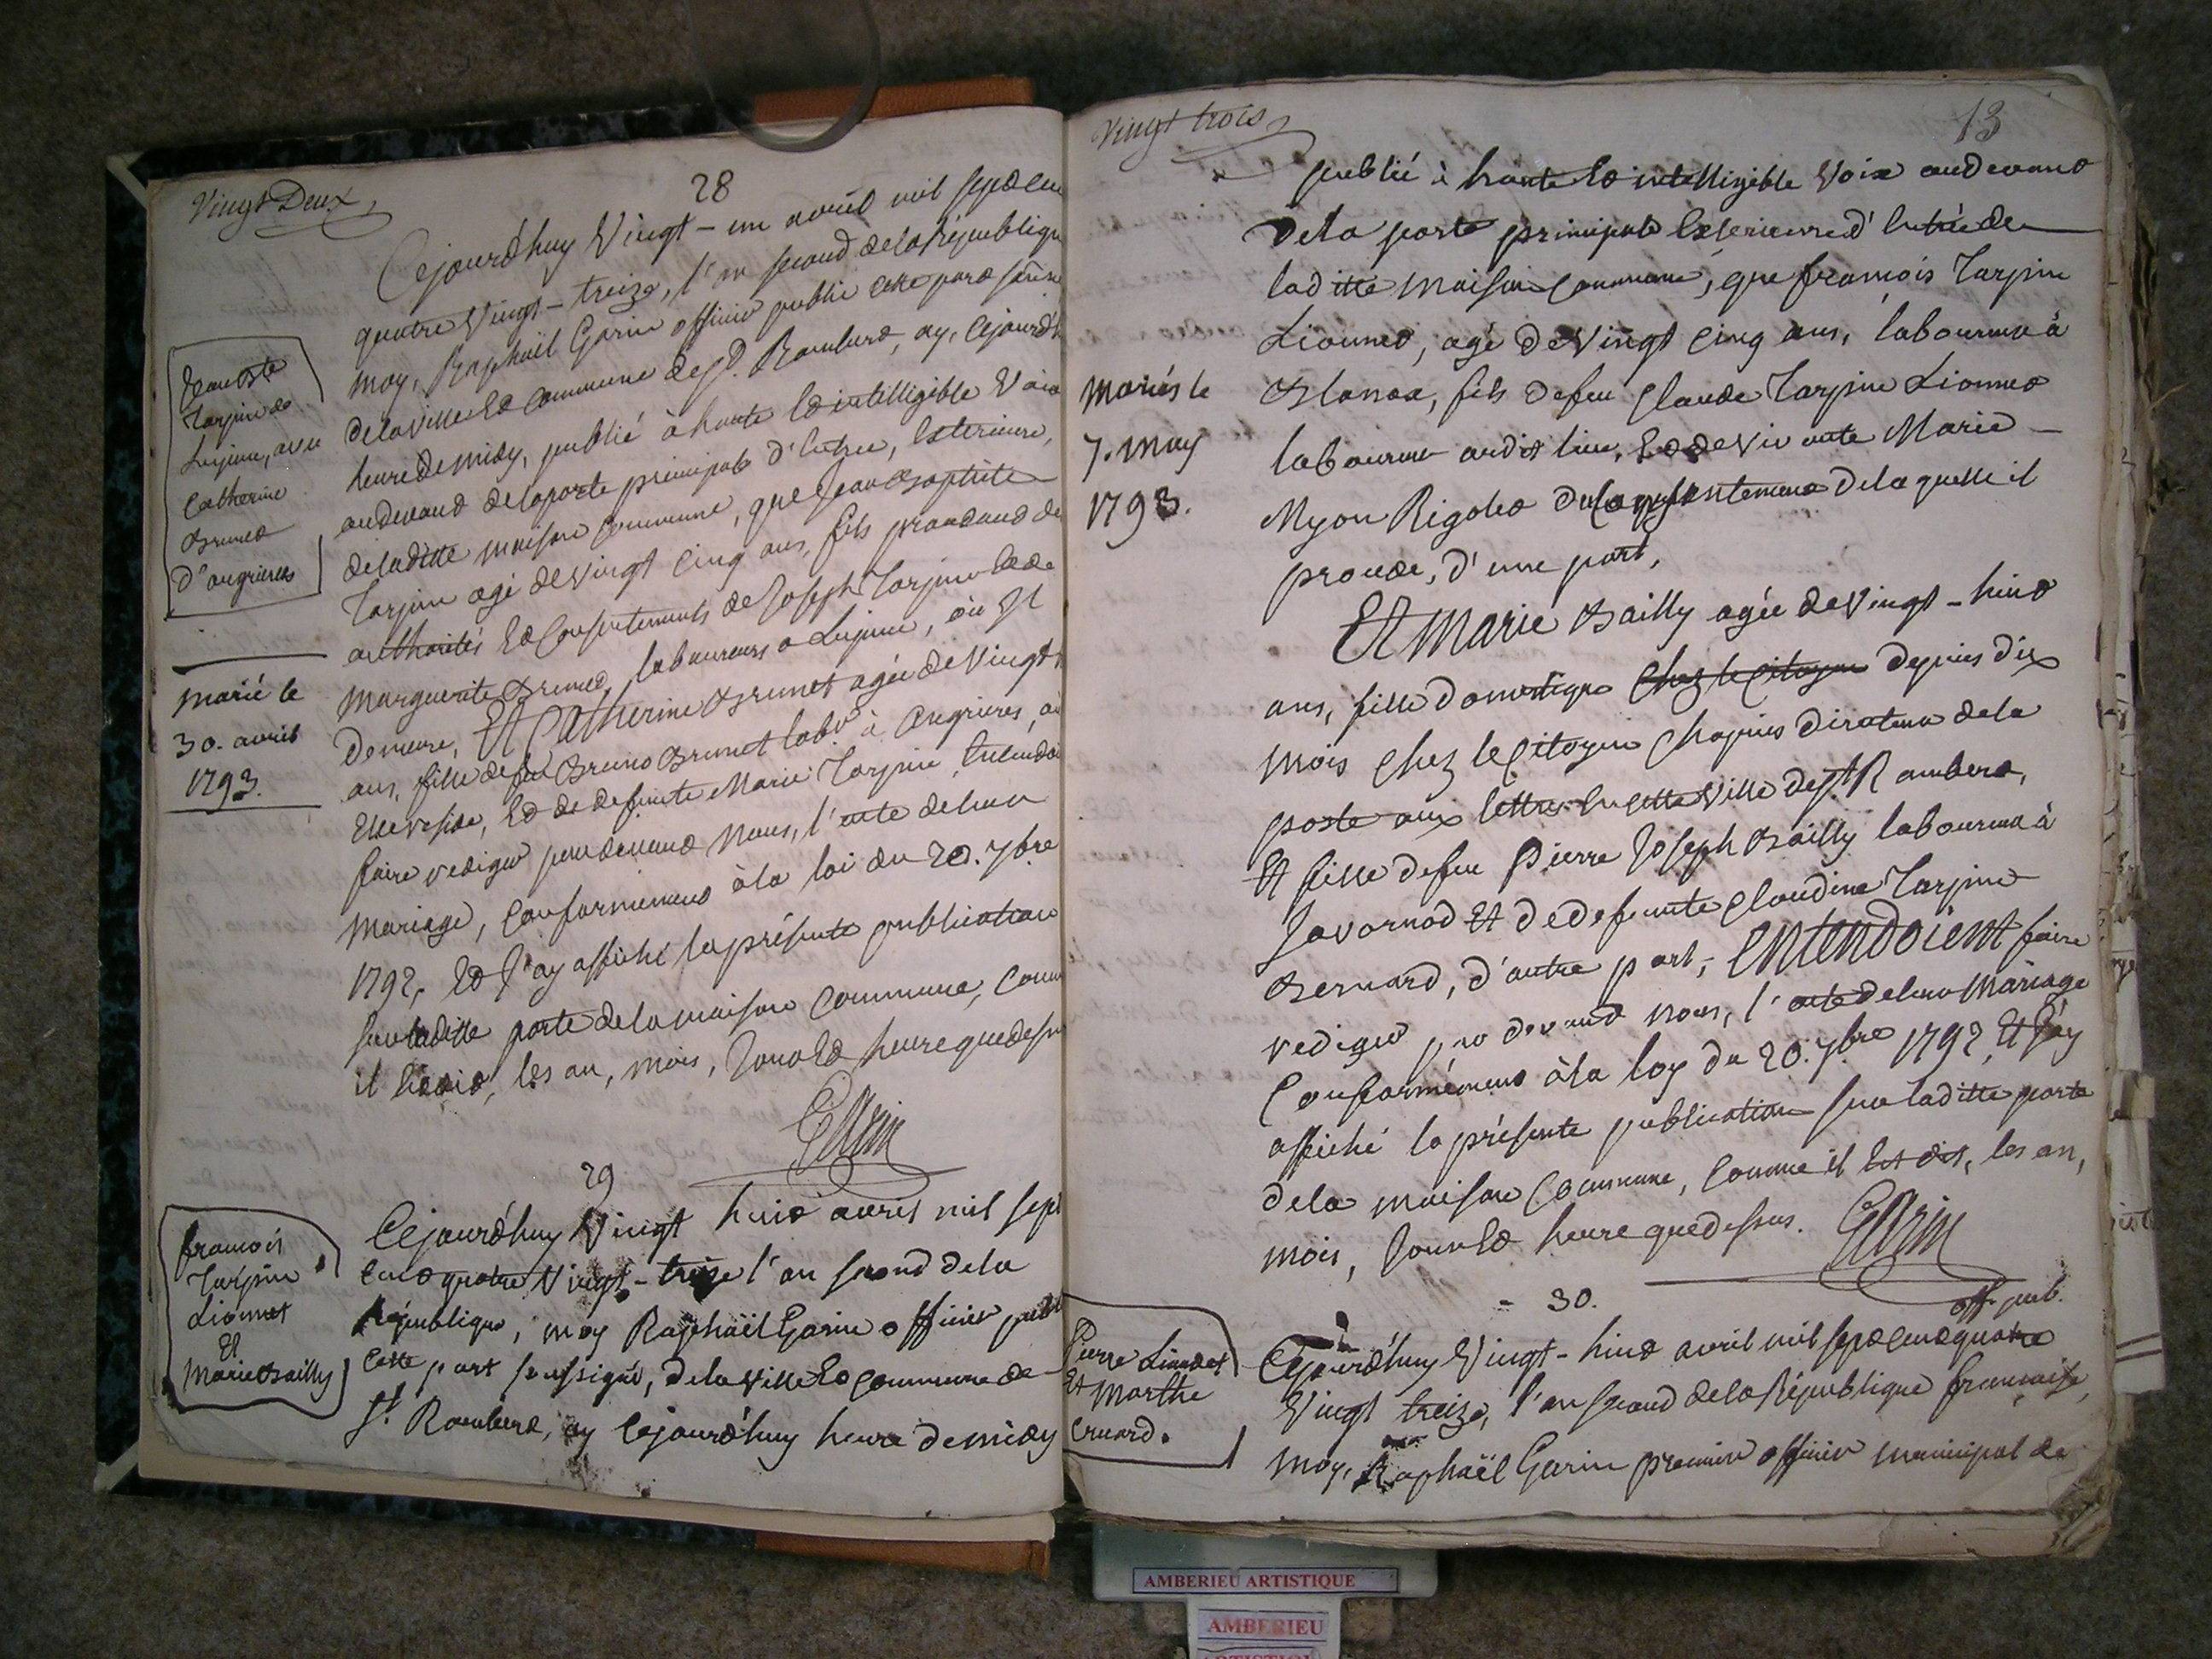 Vingt Deux
28
Cejourd'huy Vingt-un avril mil sept cen
quatre Vingt-treize, l'an second de la République
moy, Raphaël Garin officier public cette part soussi
de la Ville Et Commune de St. Rambert, ay, Cejourd'h
heure de midy, publié à haute Et intelligible Voix
audevant de la porte principale d'Entrée, Exterieure,
de laditte maison Commune, que Jean Baptiste
Tarpin agé de Vingt Cinq ans, fils procedant de
authorités Et Consentements de Joseph Tarpin Et de
Marguerite Brunet, laboureurs a Lupieu, où Il
demeure, Et Catherine Brunet agée de Vingt
ans, fille de feu Bruno Brunet labr à angrieres, où
Elle reside, Et de defunte Marie Tarpin, Entendoi
faire rediger pardevant Nous, l'acte de leur
Mariage, Conformement à la loi du 20. 7bre
1792, Et J'ay affiché la présente publication
sur laditte porte de la maison Commune, Comme
il Est dit, les an, mois, Jour Et heure que dessus
Garin
Jean Bte
Tarpin de
Lupieu, avec
Catherine
Brunet
D'angrieres
marié le
30. avril
1793.
29
Cejourd'huy Vingt huit avril mil sept
Cent quatre Vingt-treize l'an second de la
République, moy Raphaël Garin officier publ
Cette part soussigné, de la Ville Et Commune de
St. Rambert, ay Cejourd'huy heure de midy
francois
Tarpin
Lionnet
Et
Marie Bailly
Vingt trois
13
publié à haute Et intelligible Voix audevant
De la porte principale Exterieure d'Entrée de
laditte maison Commune, que francois Tarpin
Lionnet, agé de Vingt Cinq ans, laboureur à
Blanaz, fils de feu Claude Tarpin Lionnet
laboureur audit lieu, Et de Vivante Marie
Myon Rigolet du Consentement de laquelle il
procede, d'une part,
Et Marie Bailly agée de Vingt-huit
ans, fille domestique Chez le Citoyen depuis dix
mois Chez le Citoyen Chapuis directeur de la
poste aux lettres En cette Ville de St. Rambert,
Et fille de feu Pierre Joseph Bailly laboureur à
Javornod Et de defunte Claudine Tarpin
Bernard, d'autre part, Entendoient faire
rediger par devant Nous, l'acte de leur Mariage
Conformément à la loy du 20. 7bre 1792, Et J'ay
affiché la présente publication sur laditte porte
de la maison Commune, Comme il Est dit, les an,
mois, Jour Et heure que dessus. Garin
off. pub.
mariés le
7. may
1793.
30.
Cejourd'huy Vingt-huit avril mil sept cent quatre
Vingt treize, l'an second de la République francaise,
moy, Raphaël Garin premier officier municipal de
Pierre
Et Marthe
Cruard.
AMBERIEU ARTISTIQUE
AMBERIEU